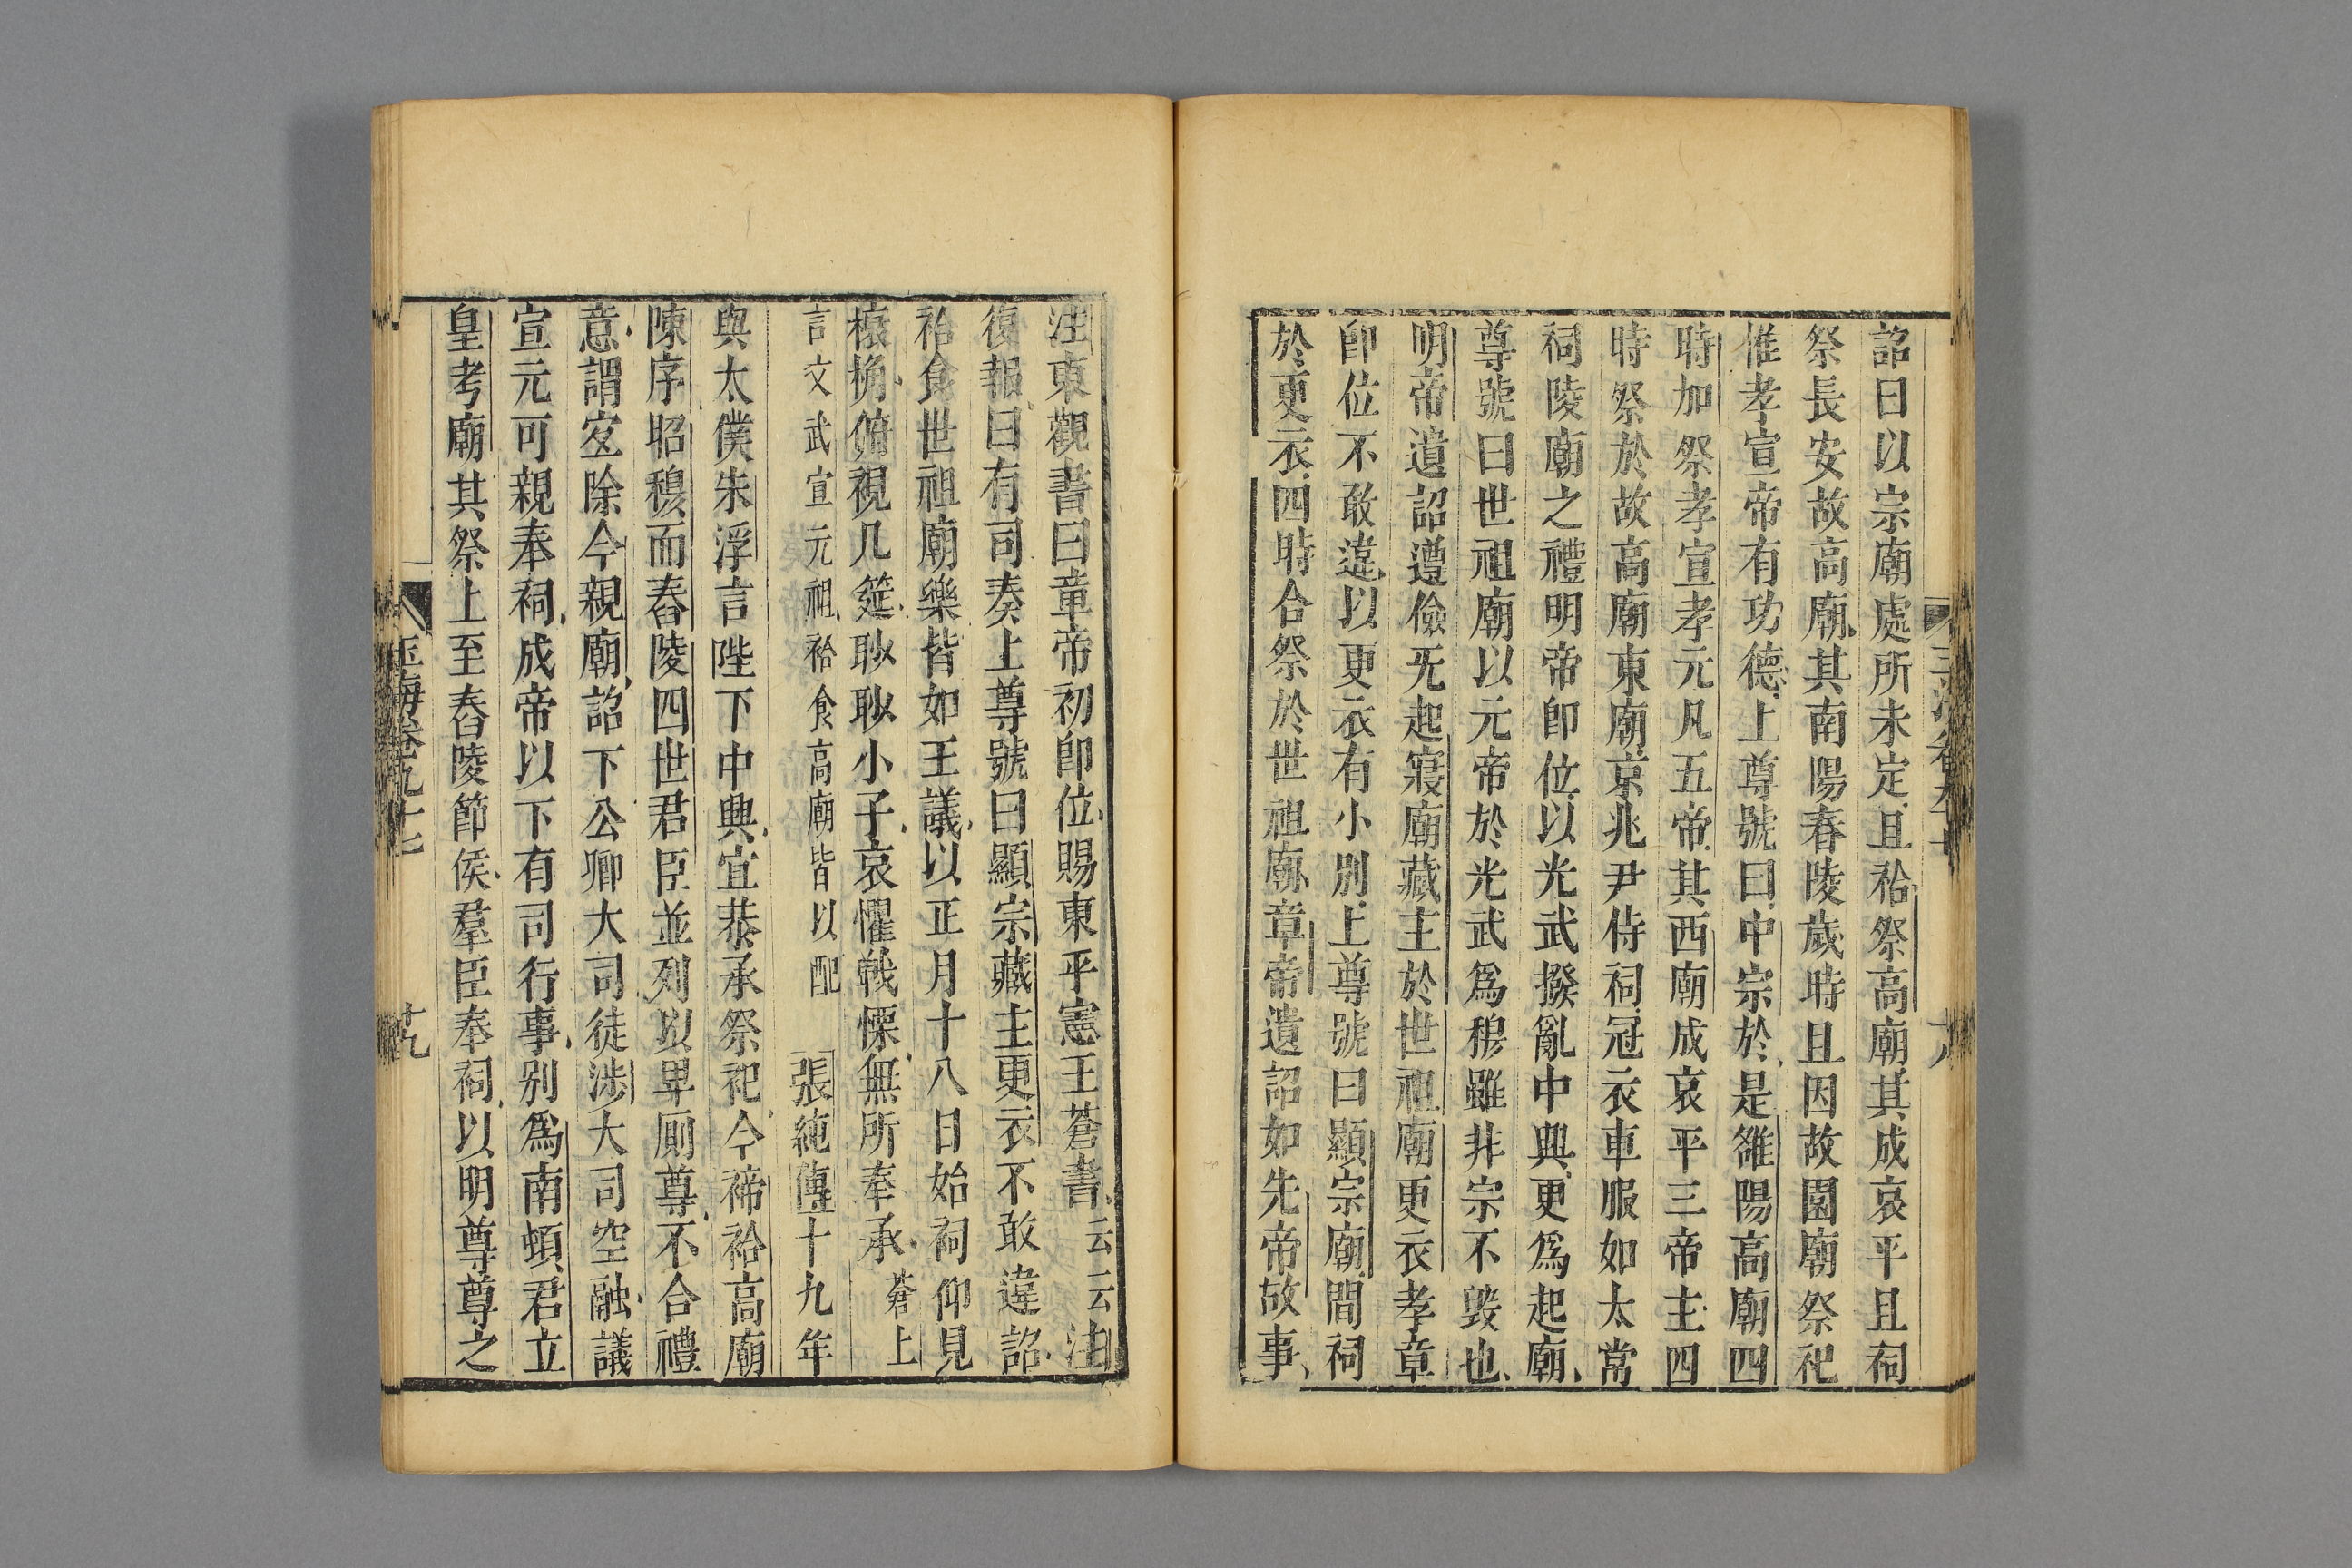 詔曰以宗廟處所未定且祫祭高廟其成哀平且祠
祭長安故高廟其南陽舂陵歲時且因故園廟祭祀
惟孝宣帝有功德上尊號曰中宗於是雒陽高廟四
時加祭孝宣孝元凡五帝其西廟成哀平三帝主四
時祭於故高廟東廟京兆尹侍祠冠衣車服如太常
祠陵廟之禮明帝卽位以光武撥亂中興更爲起廟
尊號曰世祖廟以元帝於光武爲穆雖非宗不毀也
明帝遺詔遵儉無起寢廟藏主於世祖廟更衣孝章
卽位不敢違以更衣有小別上尊號曰顯宗廟間祠
於更衣四時合祭於世祖廟章帝遺詔如先帝故事
注東觀書曰章帝初卽位賜東平憲王蒼書云云注
復報曰有司奏上尊號曰顯宗藏主更衣不敢違詔
祫食世祖廟樂皆如王議以正月十八日始祠仰見
榱桷俯視几筵眇眇小子哀懼戰慄無所奉承蒼上
言文武宣元祖祫食高廟皆以配 張純傳十九年
與太僕朱浮言陛下中興宜恭承祭祀今禘祫高廟
陳序昭穆而舂陵四世君臣並列以卑厠尊不合禮
意謂宜除今親廟詔下公卿大司徒涉大司空融議
宣元可親奉祠成帝以下有司行事別爲南頓君立
皇考廟其祭上至舂陵節侯羣臣奉祠以明尊尊之
玉海卷九十七 廿九